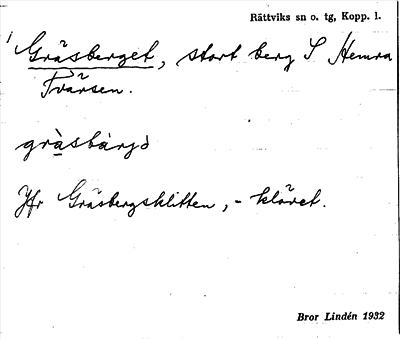 Rättviks sn o. tg, Kopp. l.
1 Gräsberget, stort berg S Hemra
Tvärsen.
gràsbàrjò
Jfr Gräsbergsklitten, - klövet.
Bror Lindén 1932